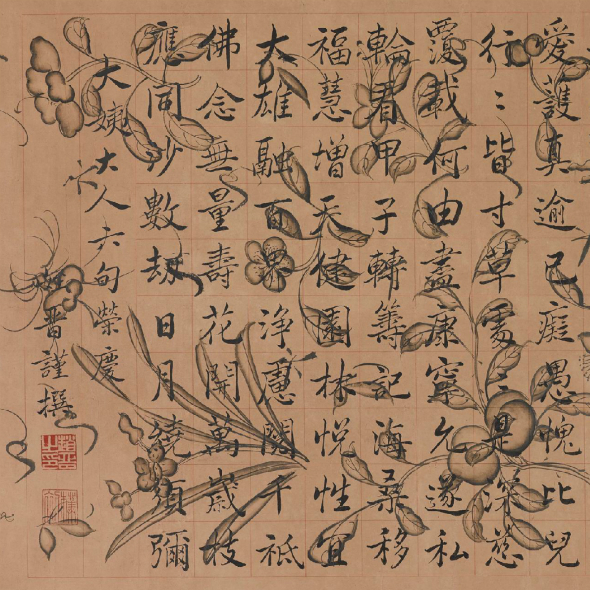 愛護真逾己癡愚愧比兒
行〻皆寸草處〻是深慈
覆載何由盡康寧允遂私
輪看甲子轉籌記海桑移
福慧增天健園林悅性宜
大雄融百界淨慮千祇
佛念無量壽花開萬歲枝
應同沙數劫日月繞須彌
大姨大人六旬榮慶
晉謹撰